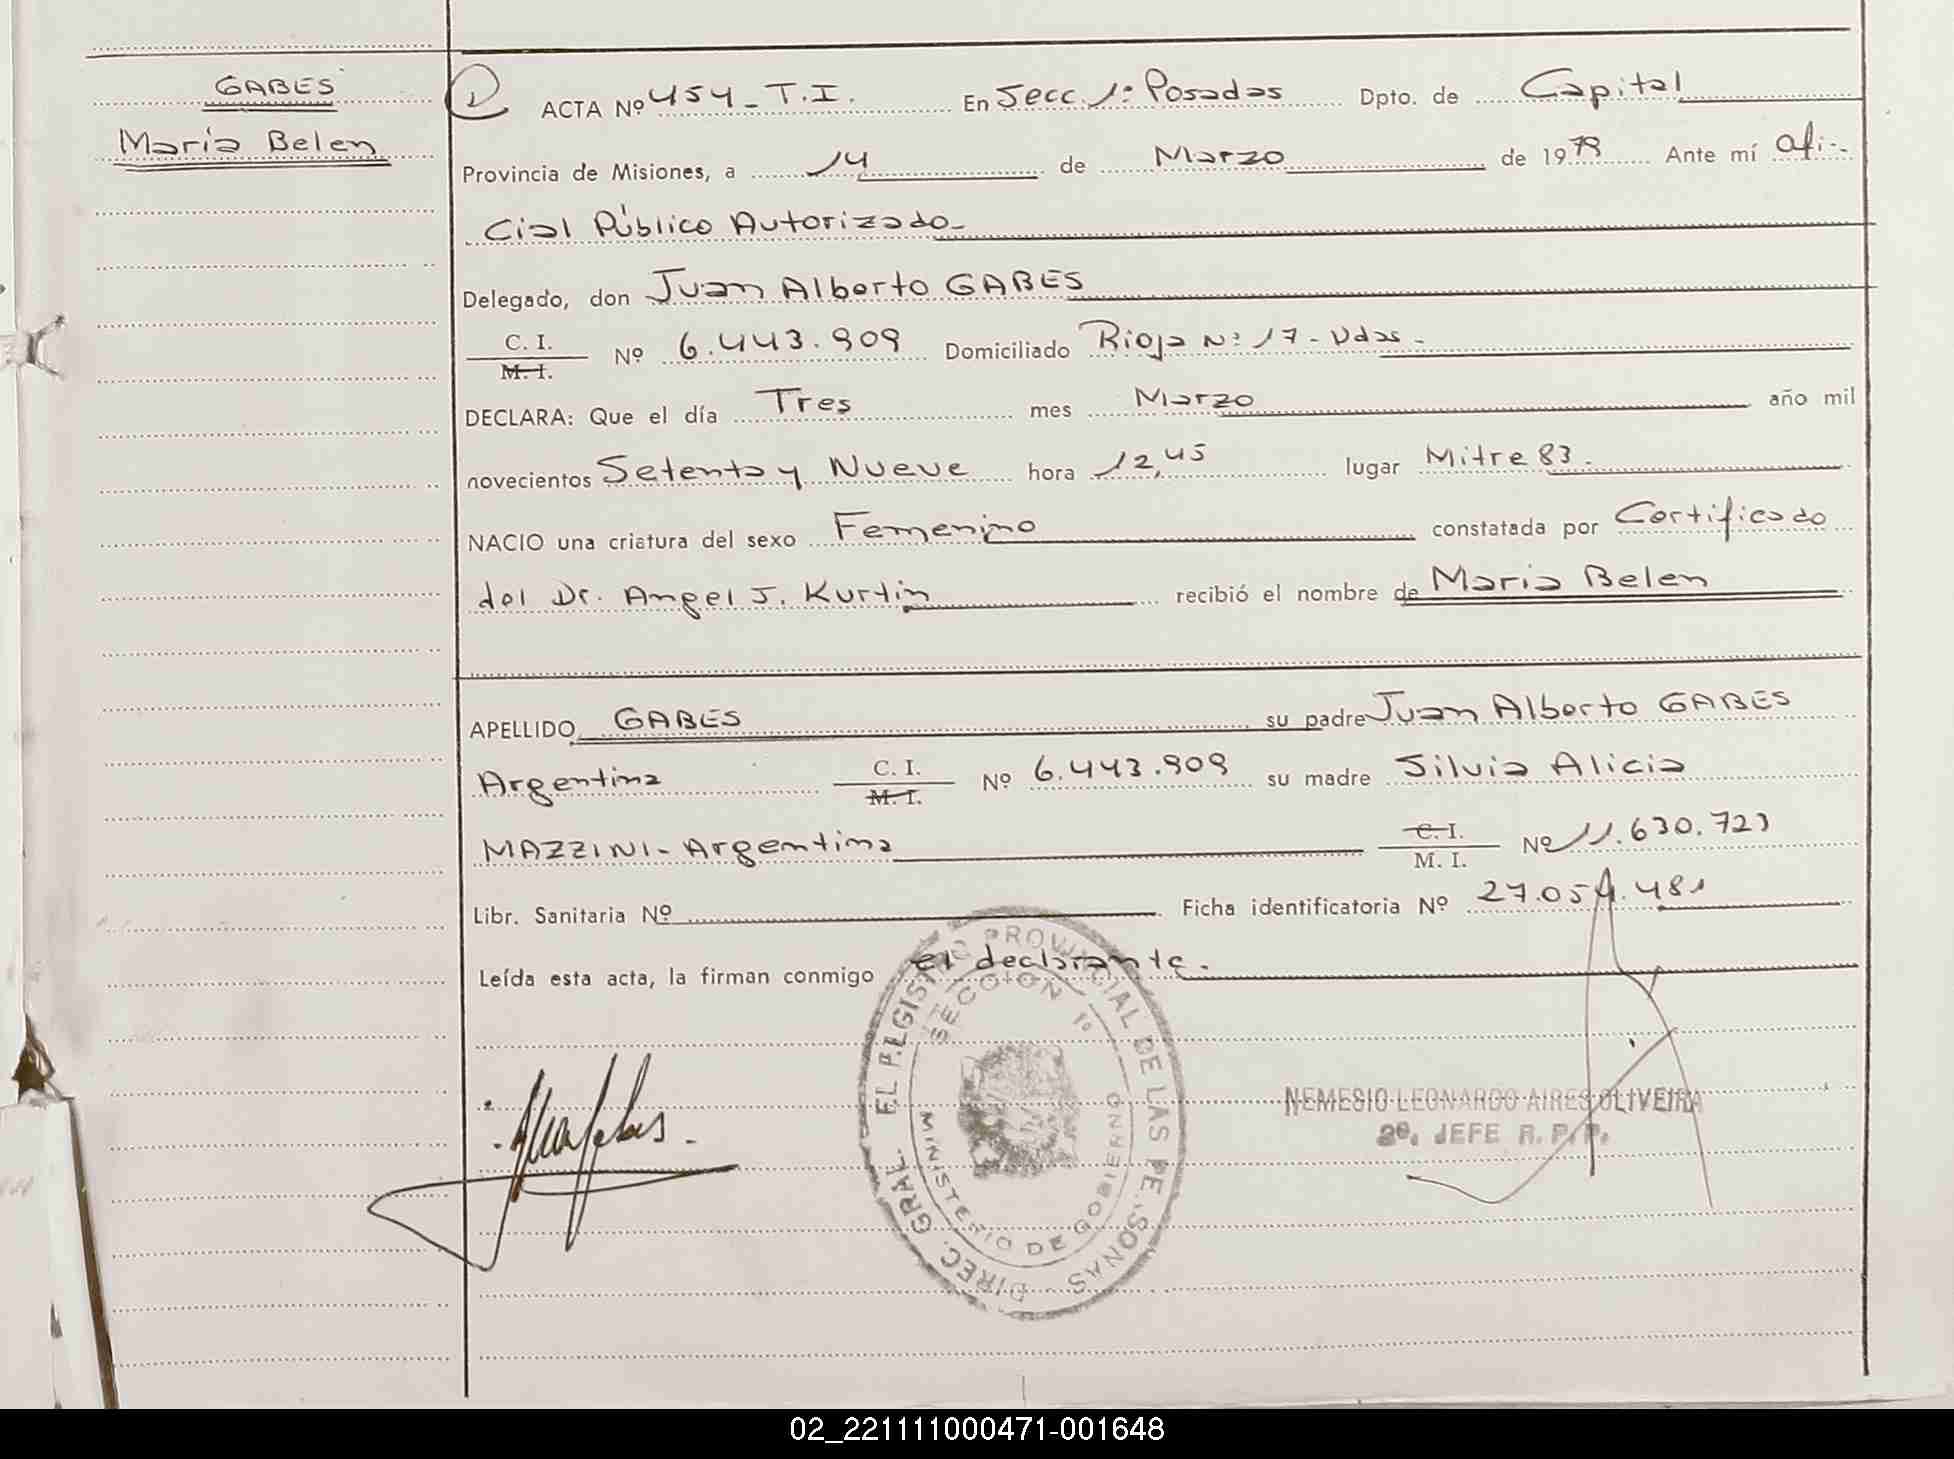 GABES
María Belen
ACTA Nº 454_T.I. En Secc. 1º Posadas Dpto. de Capital
Provincia de Misiones, a 14 de Marzo de 1979 Ante mí Ofi-
cial Público Autorizado_
Delegado, don Juan Alberto GABES
C. I.
M. I.
Nº 6.443.909 Domiciliado Rioja Nº 17 - Vdas.
DECLARA: Que el día Tres mes Marzo año mil
novecientos Setenta y Nueve hora 12,45 lugar Mitre 83.
NACIO una criatura del sexo Femenino constatada por Certificado
del Dr. Angel J. Kurtin recibió el nombre de María Belen
APELLIDO GABES su padre Juan Alberto GABES
Argentina C. I. M. I. Nº 6.443.909 su madre Silvia Alicia
MAZZINI - Argentina C. I. M. I. Nº 11.630.723
Libr. Sanitaria Nº Ficha identificatoria Nº 27.054.481
Leída esta acta, la firman conmigo el declarante.
DIREC. GRAL. EL REGISTRO PROVINCIAL DE LAS PERSONAS
SECCION 1º
MINISTERIO DE GOBIERNO
NEMESIO LEONARDO AIRES OLIVEIRA
2º. JEFE R. P. P.
02_221111000471-001648